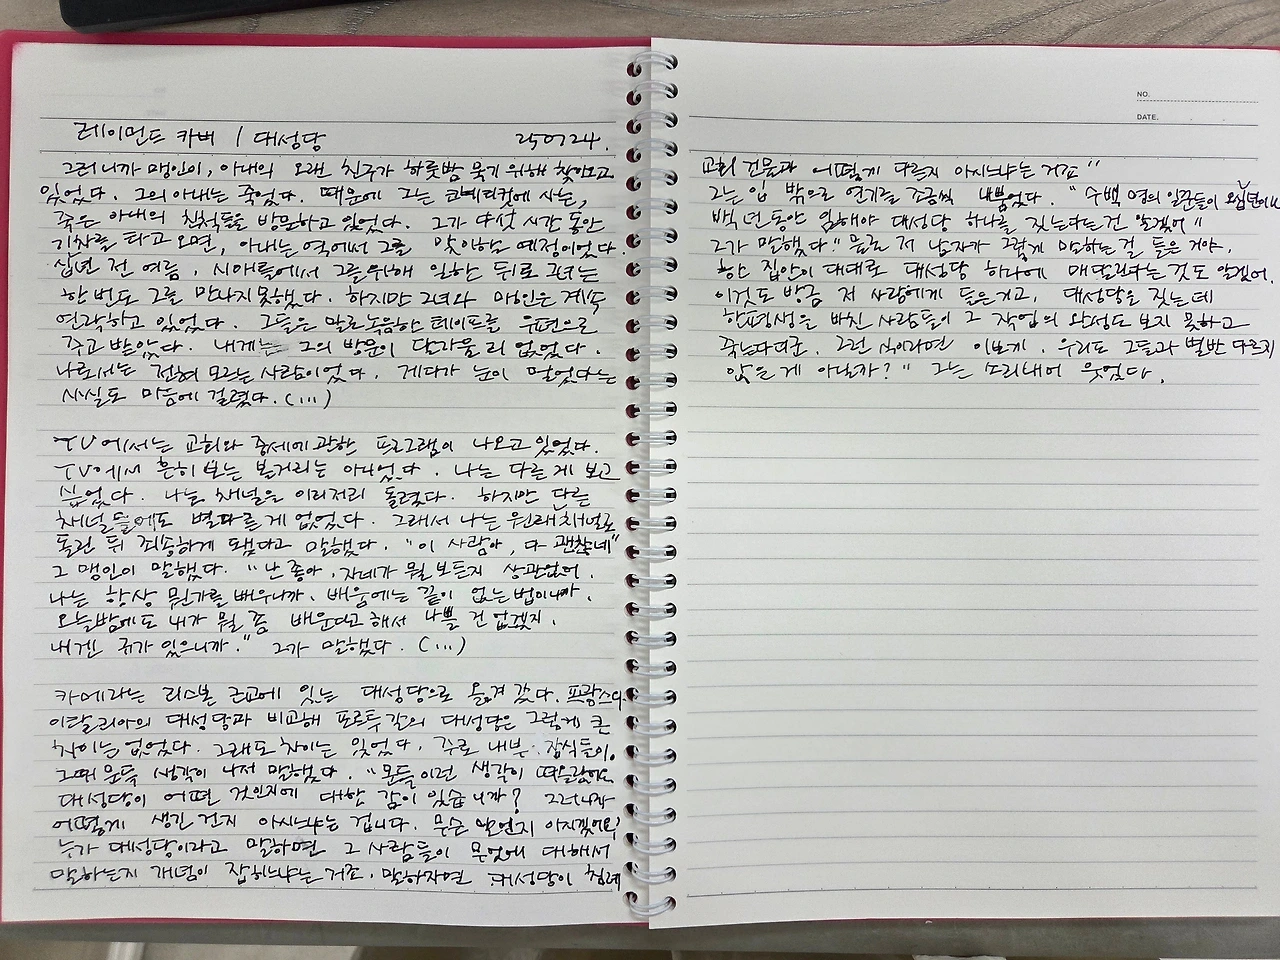 레이먼드 카버 / 대성당 250724.
그러니까 맹인이, 아내의 오랜 친구가 하룻밤 묵기 위해 찾아오고
있었다. 그의 아내는 죽었다. 때문에 그는 코네티컷에 사는,
죽은 아내의 친척들을 방문하고 있었다. 그가 다섯 시간 동안
기차를 타고 오면, 아내는 역에서 그를 맞이할 예정이었다.
십년 전 여름, 시애틀에서 그를 위해 일한 뒤로 그녀는
한 번도 그를 만나지 못했다. 하지만 그녀와 맹인은 계속
연락하고 있었다. 그들은 말로 녹음한 테이프를 우편으로
주고 받았다. 내게는 그의 방문이 달가울 리 없었다.
나로서는 전혀 모르는 사람이었다. 게다가 눈이 멀었다는
사실도 마음에 걸렸다. (...)
TV에서는 교회와 중세에 관한 프로그램이 나오고 있었다.
TV에서 흔히 보는 볼거리는 아니었다. 나는 다른 게 보고
싶었다. 나는 채널을 이리저리 돌렸다. 하지만 다른
채널들에도 별다를 게 없었다. 그래서 나는 원래 채널로
돌린 뒤 죄송하게 됐다고 말했다. "이 사람아, 다 괜찮네"
그 맹인이 말했다. "난 좋아. 자네가 뭘 보든지 상관없어.
나는 항상 뭔가를 배우니까. 배움에는 끝이 없는 법이니까.
오늘밤에도 내가 뭘 좀 배운다고 해서 나쁠 건 없겠지.
내겐 귀가 있으니까." 그가 말했다. (...)
카메라는 리스본 근교에 있는 대성당으로 옮겨 갔다. 프랑스와
이탈리아의 대성당과 비교해 포르투갈의 대성당은 그렇게 큰
차이는 없었다. 그래도 차이는 있었다. 주로 내부 장식들이.
그때 문득 생각이 나서 말했다. "문득 이런 생각이 떠올랐어요.
대성당이 어떤 것인지에 대한 감이 있습니까? 그러니까
어떻게 생긴 건지 아시느냐는 겁니다. 무슨 말인지 아시겠어요?
누가 대성당이라고 말하면 그 사람들이 무엇에 대해서
말하는지 개념이 잡히느냐는 거죠. 말하자면 대성당이 침례
NO.
DATE.
교회 건물과 어떻게 다른지 아시느냐는 거죠"
그는 입 밖으로 연기를 조금씩 내뿜었다. "수백 명의 일꾼들이 오십년이나
백 년 동안 일해야 대성당 하나를 짓는다는 건 알겠어"
그가 말했다 "물론 저 남자가 그렇게 말하는 걸 들은 거야.
한 집안이 대대로 대성당 하나에 매달린다는 것도 알겠어.
이것도 방금 저 사람에게 들은거고, 대성당을 짓는데
한평생을 바친 사람들이 그 작업의 완성도 보지 못하고
죽는다더군. 그런 식이라면 이보게. 우리도 그들과 별반 다르지
않은 게 아닐까?" 그는 소리내어 웃었다.